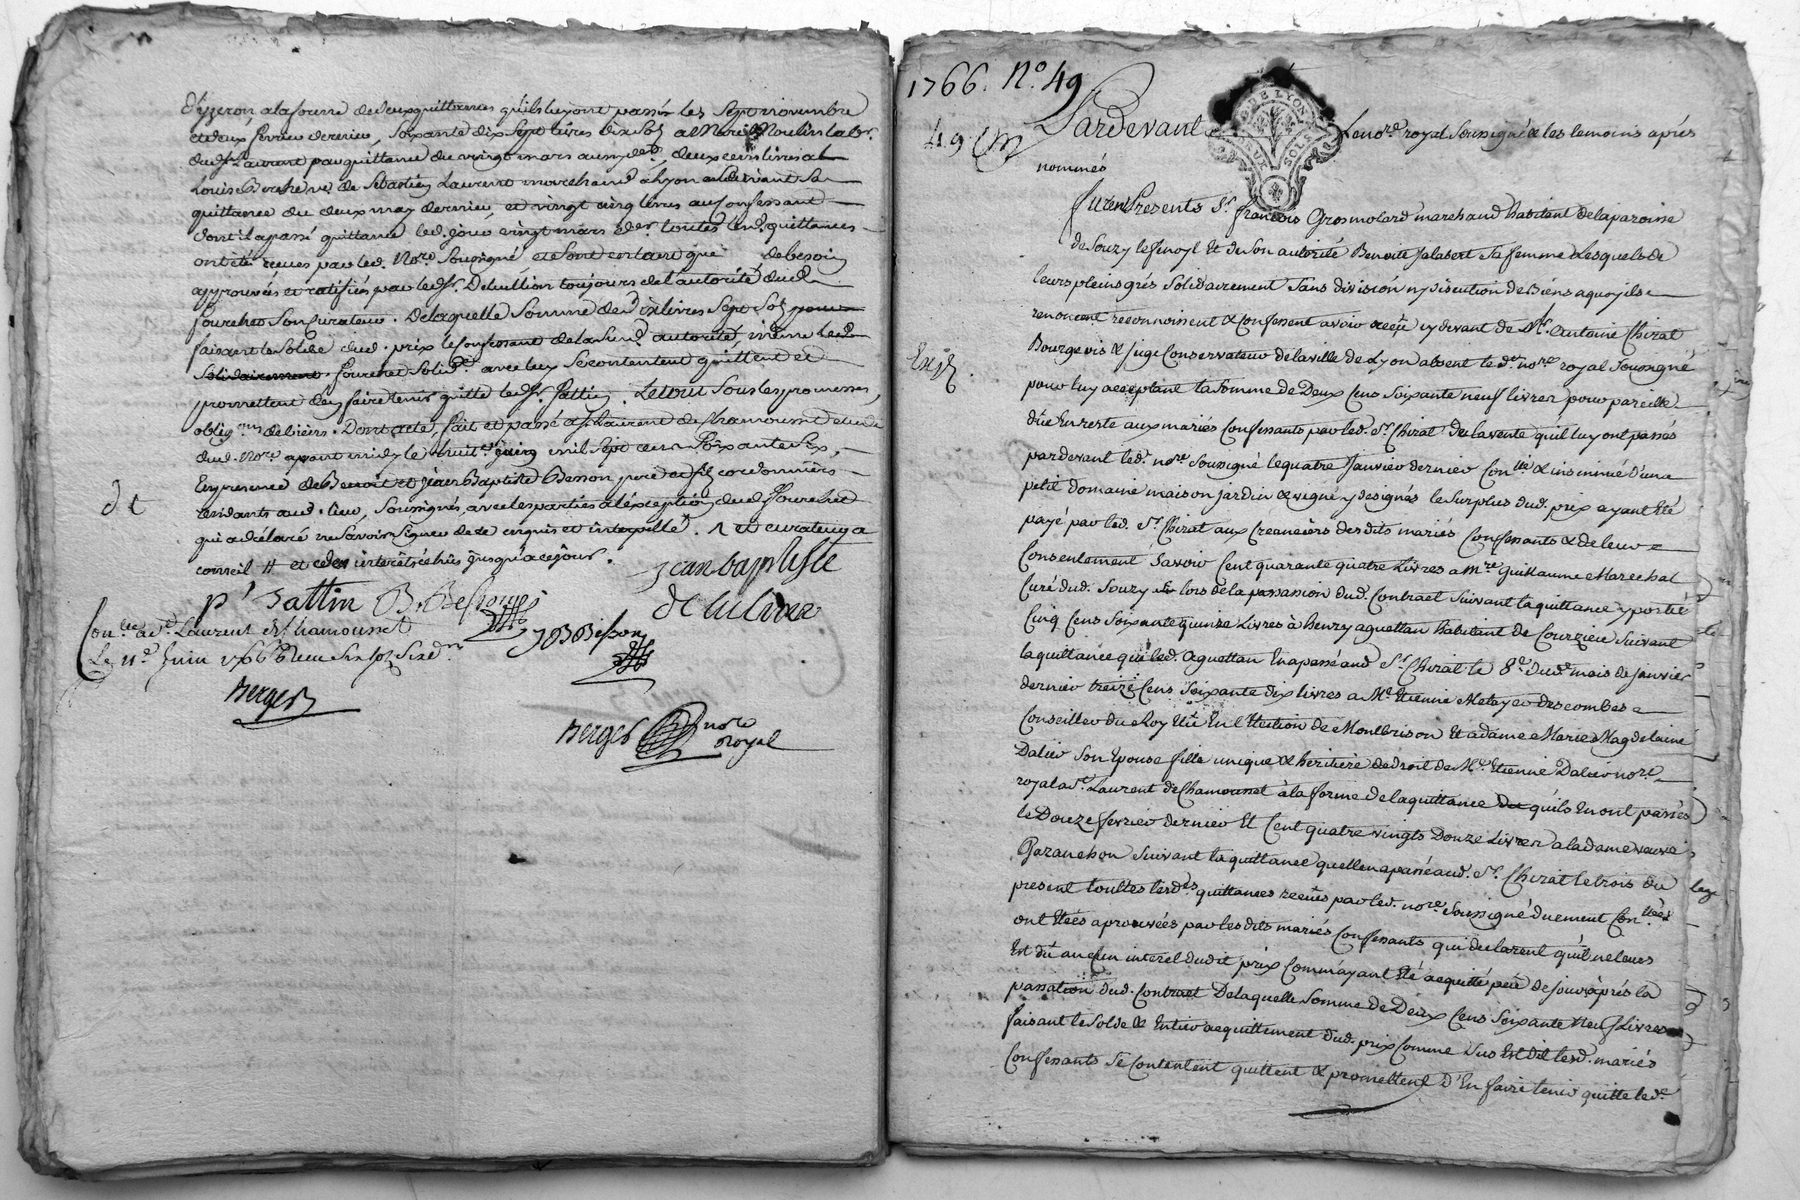 d'yzeron a la forme de deux quittances qu'ils luy ont passés les sept novembre
et deux fevrier dernier, soixante dix sept livres dix sols a Marie Moulin lab.
dud. St. Laurent par quittance du vingt mars aussy der., deux cens livres a
Louis de Sebastien Laurent marchand a Lyon suivant sa
quittance du deux may dernier, et vingt cinq livres au confessant
dont il a passé quittance led. jour vingt mars der. toutes lesd. quittances
ont été recues par led. nore. soussigné et sont en tant que de besoin
approuvées et ratifiés par led. Sr. Delullion toujours de l'autorité dud.
fourchet son curateur. De laquelle somme de dix livres sept sols
faisant le solde dud. prix le confessant de lad. autorité, même led.
solidairement fourchet solid. avec luy se contentent quittent et
promettent d'en faire tenir quitte led. Sr. Pattin. Le tout sous les promesses,
obligons. de biens. Dont acte, fait et passé a St. Laurent de Chamousset etude
dud. nore. avant midy le huit juin mil sept cens soixante six,
En presence de Benoit et Jean Baptiste Besson, pere et fils cordonniers
residants aud. lieu, soussignés, avec les parties a l'exception dud. fourchet
qui a déclaré ne savoir signer de ce enquis et interpellé. et curateur a
de
conseil # et des intérêts échûs jusqu'a ce jour.
jean baptiste
p. Pattin B. Besson
de lulion
Conlé. a St. Laurent de Chamousset
JB Besson
Le 11e. Juin 1766 Reçu six sols six d.
Berger
Berger nore
royal
1766. No. 49
49
GDE LYON
DEUX SOLS
Pardevant Le nore. royal soussigné & les temoins aprés
nommés
furent Presents Sr. françois Grosmolard marchand habitant de la paroisse
de Souzy Le fenoyl Et de son autorité Benoite Jalabert sa femme Lesquels de
leurs pleins grés solidairement sans division ny discution de Biens a quoy ils
renoncent reconnoissent & confessent avoir reçu cy devant de Mr. Antoine Chirat
Bourgeois & juge conservateur de la ville de Lyon absent led. nore. royal soussigné
Exp.
pour luy acceptant la somme de Deux cens soixante neuf livres pour pareille
dûe En reste aux mariés confessants par led. Sr. Chirat de la vente qu'il luy ont passés
pardevant led. nore. soussigné le quatre Janvier dernier Conlé & insinué d'une
petit domaine maison jardin & vigne y designés le surplus dud. prix ayant Eté
payé par led. Sr. Chirat aux creanciers des dits mariés confessants & de leur
consentement savoir Cent quarante quatre Livres a Mre. Guillaume Marechal
Curé dud. Souzy lors de la passassion dud. Contract suivant la quittance y portée
Cinq cens soixante quinze Livres à henry aguettan habitant de Courzieu suivant
la quittance que led. Aguettan En a passé aud. Sr. Chirat le 8e. dud. mois de janvier
dernier treize Cens soixante dix livres a Mr. Etienne Metayer descombes
Conseiller du Roy Elû En l'Election de Montbrison Et a dame Marie Magdelaine
Dalier son Epouse fille unique & heritiere de droit de Mr. Etienne Dalier nore.
royal a St. Laurent de Chamousset à la forme de la quittance qu'ils En ont passés
le Douze fevrier dernier Et Cent quatre vingts Douze Livres a la dame veuve
Gazanchon suivant la quittance qu'elle en a passé aud. Sr. Chirat le trois du
present touttes lesdes. quittances recües par led. nore. soussigné duement Conlées.
ont Etées aprouvées par les dits mariés confessants qui declarent qu'il ne leurs
Est dû aucun interet dudit prix comm'ayant Eté acquitté peu de jours après la
passation dud. Contract De laquelle somme de Deux Cens soixante neuf Livres
faisant le solde & Entier acquittement dud. prix comme dus Est dit lesd. mariés
confessants se contentent quittent & promettent D'En faire tenir quitte led.